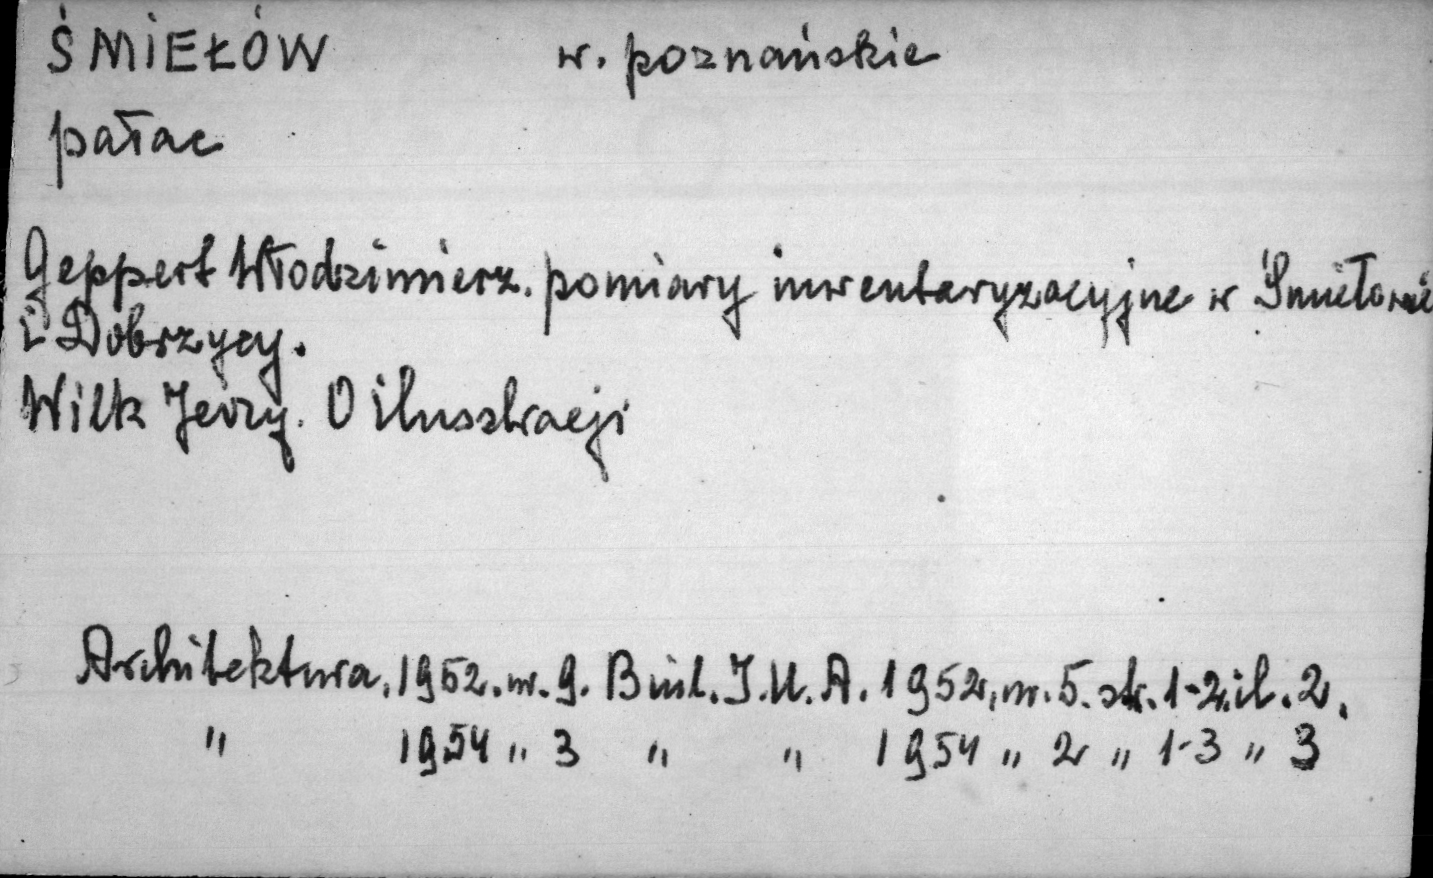 ŚMIEŁÓW w. poznańskie
pałac
Geppert Włodzimierz. pomiary inwentaryzacyjne w Śmiełowie
i Dobrzycy.
Wilk Jerzy. O ilustracji
Architektura, 1952. nr. 9. Biul. I.U.A. 1952, nr. 5. str. 1-2. il. 2.
" 1954 " 3 " " 1954 " 2 " 1-3 " 3